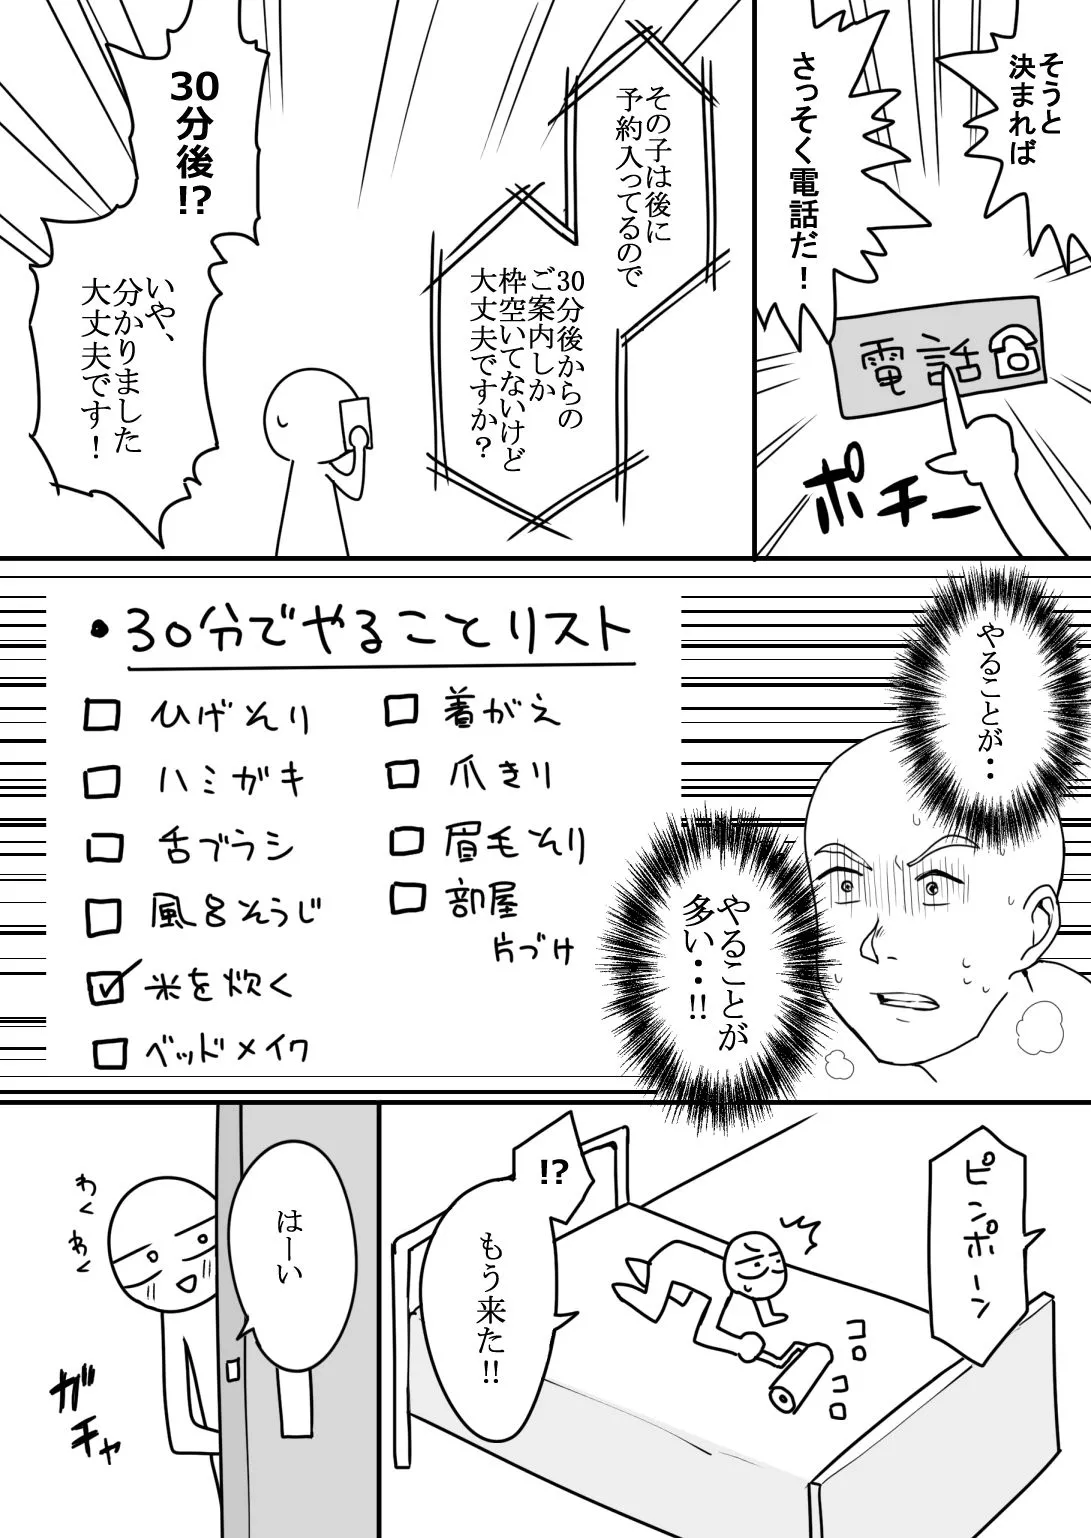 そうと
決まれば
さっそく電話だ！
電話
ポチー
その子は後に
予約入ってるので
30分後からの
ご案内しか
枠空いてないけど
大丈夫ですか？
30分後!?
いや、
分かりました
大丈夫です！
・30分でやることリスト
ひげそり
ハミガキ
舌ブラシ
風呂そうじ
米を炊く
ベッドメイク
着がえ
爪きり
眉毛そり
部屋
片づけ
やることが・・
やることが
多い・・!!
ピンポーン
!?
もう来た!!
コロ
コロ
はーい
わく
わく
ガチャ